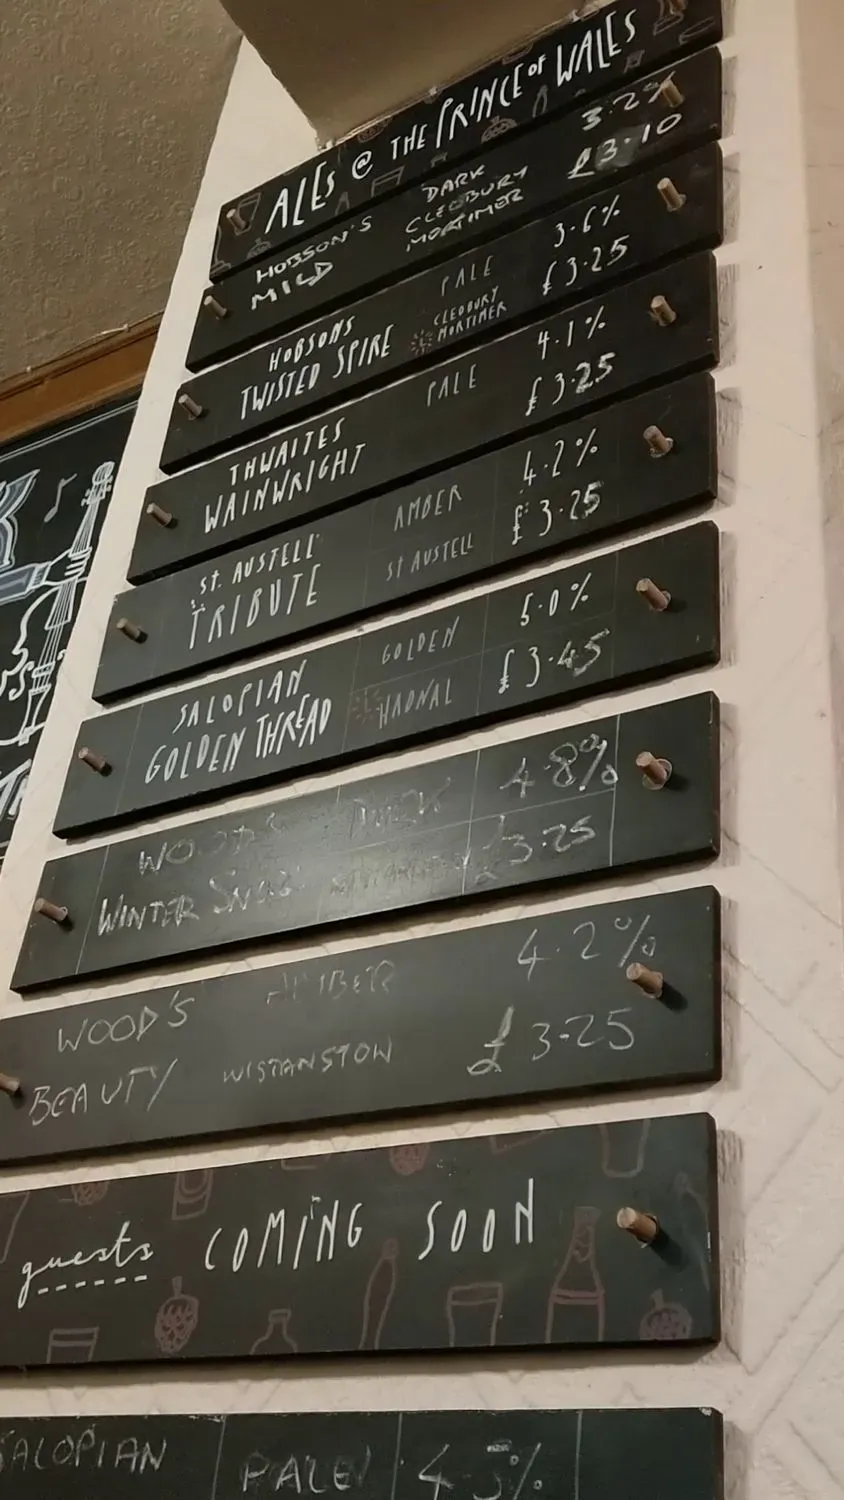 ALES @ THE PRINCE OF WALES
HOBSON'S DARK 3.2%
MILD CLEOBURY MORTIMER £3.10
HOBSONS PALE 3.6%
TWISTED SPIRE CLEOBURY MORTIMER £3.25
THWAITES PALE 4.1%
WAINWRIGHT £3.25
ST. AUSTELL AMBER 4.2%
TRIBUTE ST AUSTELL £3.25
SALOPIAN GOLDEN 5.0%
GOLDEN THREAD HADNAL £3.45
WOOD'S 4.8%
WINTER £3.25
WOOD'S AMBER 4.2%
BEAUTY WISTANSTOW £3.25
guests COMING SOON
SALOPIAN PALE 4.3%